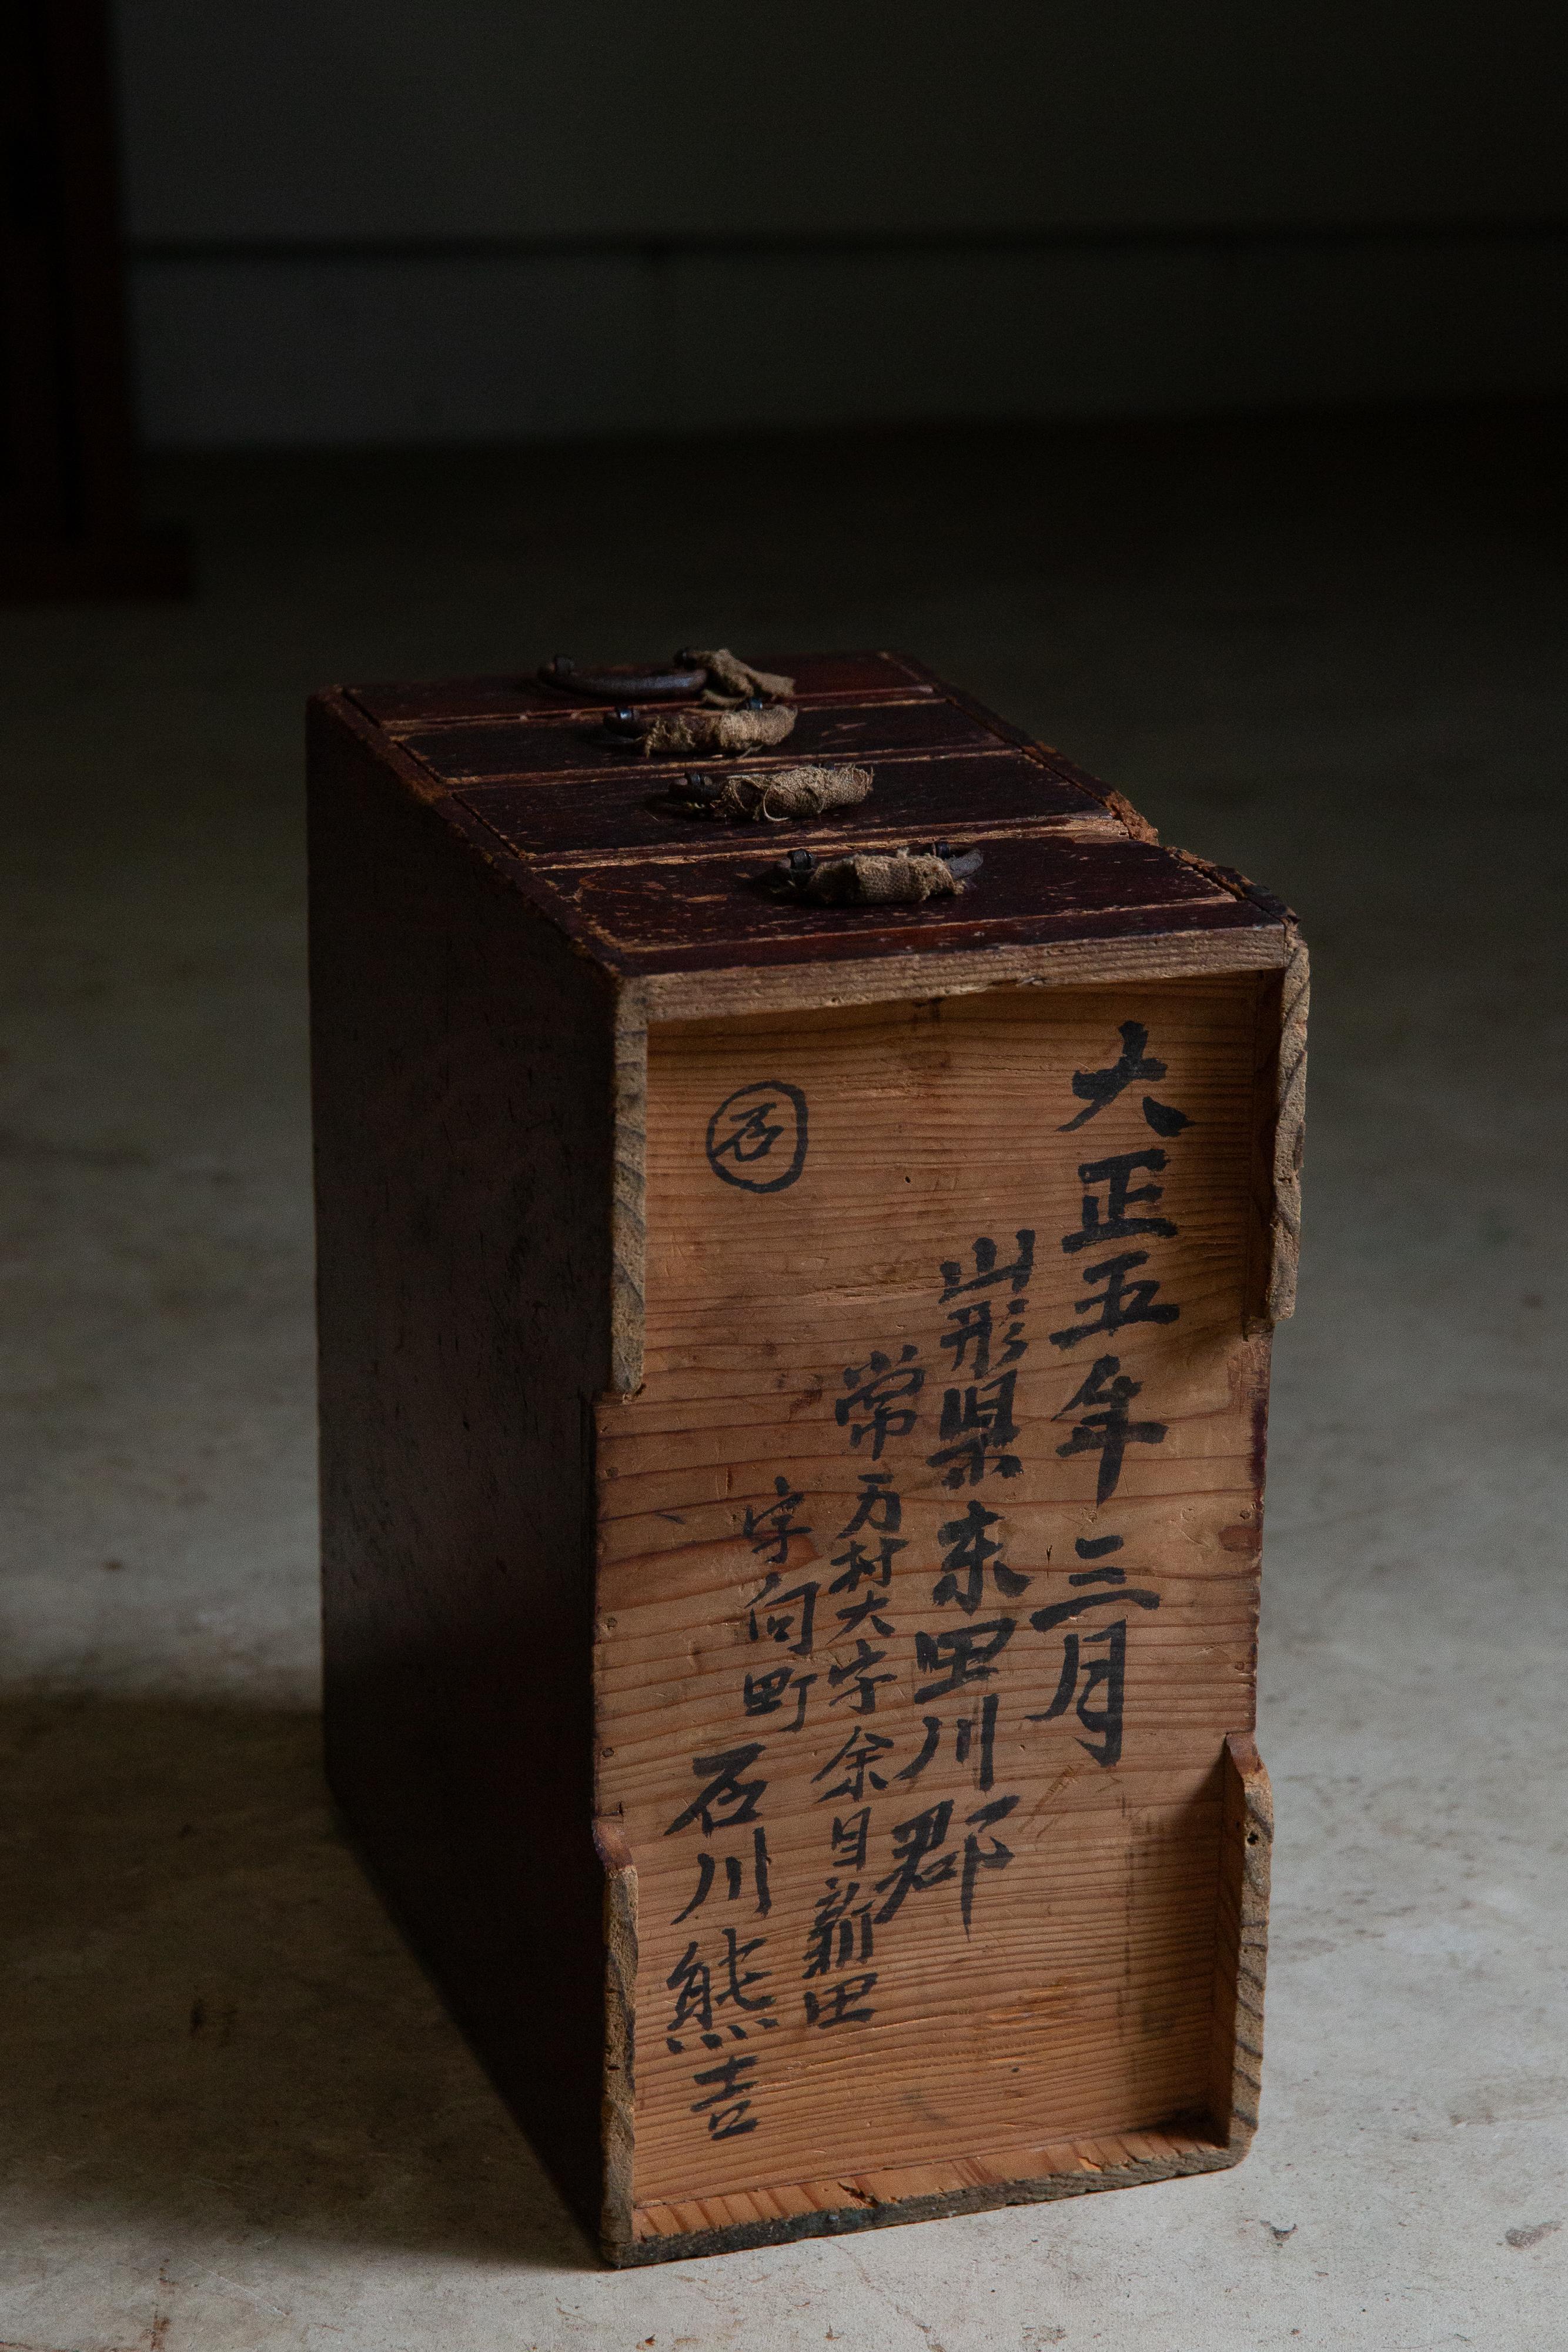 大正五年三月
山形県東田川郡
常万村大字余目新田
字向町
石川熊吉
石